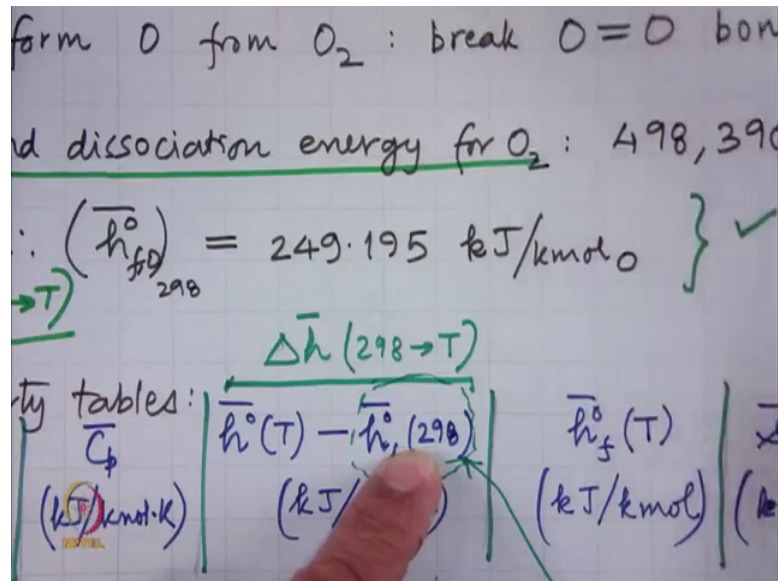 form O from O₂ : break O=O bon
d dissociation energy for O₂ : 498,390
∴ (h̄°f,O)298 = 249.195 kJ/kmolO } ✓
→T)
Δh̄ (298→T)
ty tables: | C̄p | h̄°(T) − h̄°f(298) | h̄°f(T)
(kJ/kmol·K) | (kJ/ | (kJ/kmol) | (k
NPTEL